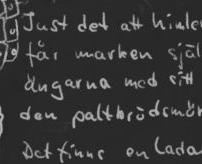 Just det att himlen
får marken själ
ängarna med sitt
den paltbrödsmör
Det finns en ladan